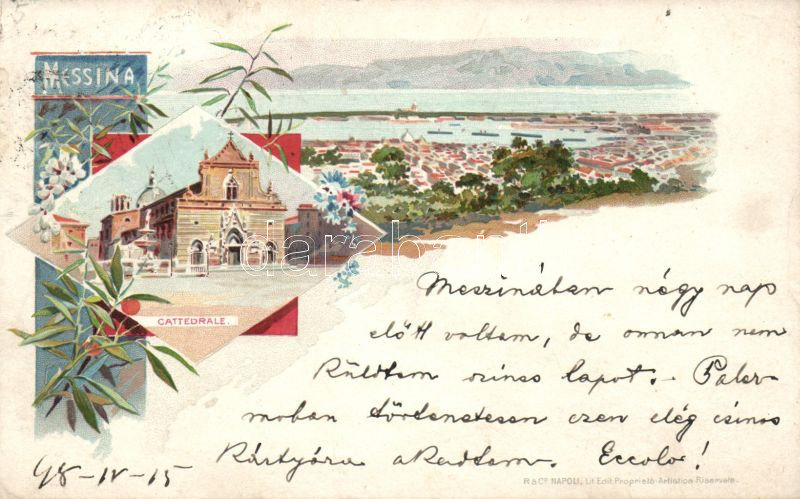 MESSINA
CATTEDRALE.
darabanth
Messzinában négy nap
előtt voltam, de onnan nem
küldtem színes lapot. - Paler-
moban történetesen ezen elég csinos
kártyára akadtam. Eccolo!
98-IV-15
R & Co. NAPOLI, Lit. Edit. Proprietà-Artistica Riservata.